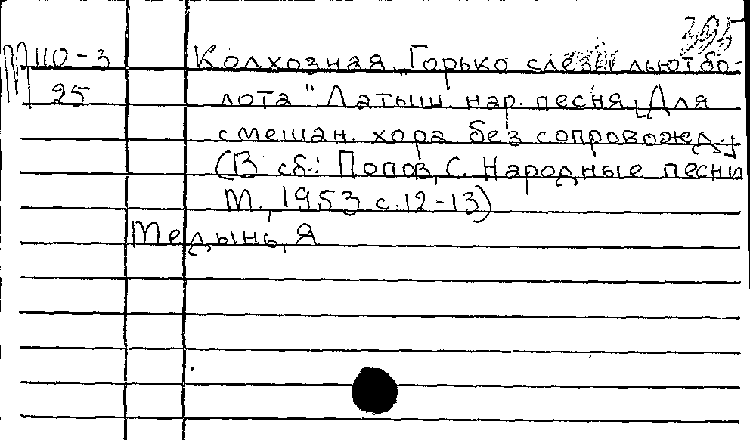 395
М 110-3 Колхозная „Горько слезы льют бо-
25 лота" Латыш. нар. песня. [Для
смешан. хора без сопровожд.]
(В сб.: Попов, С. Народные песни
М., 1953 с. 12-13)
Медынь, Я